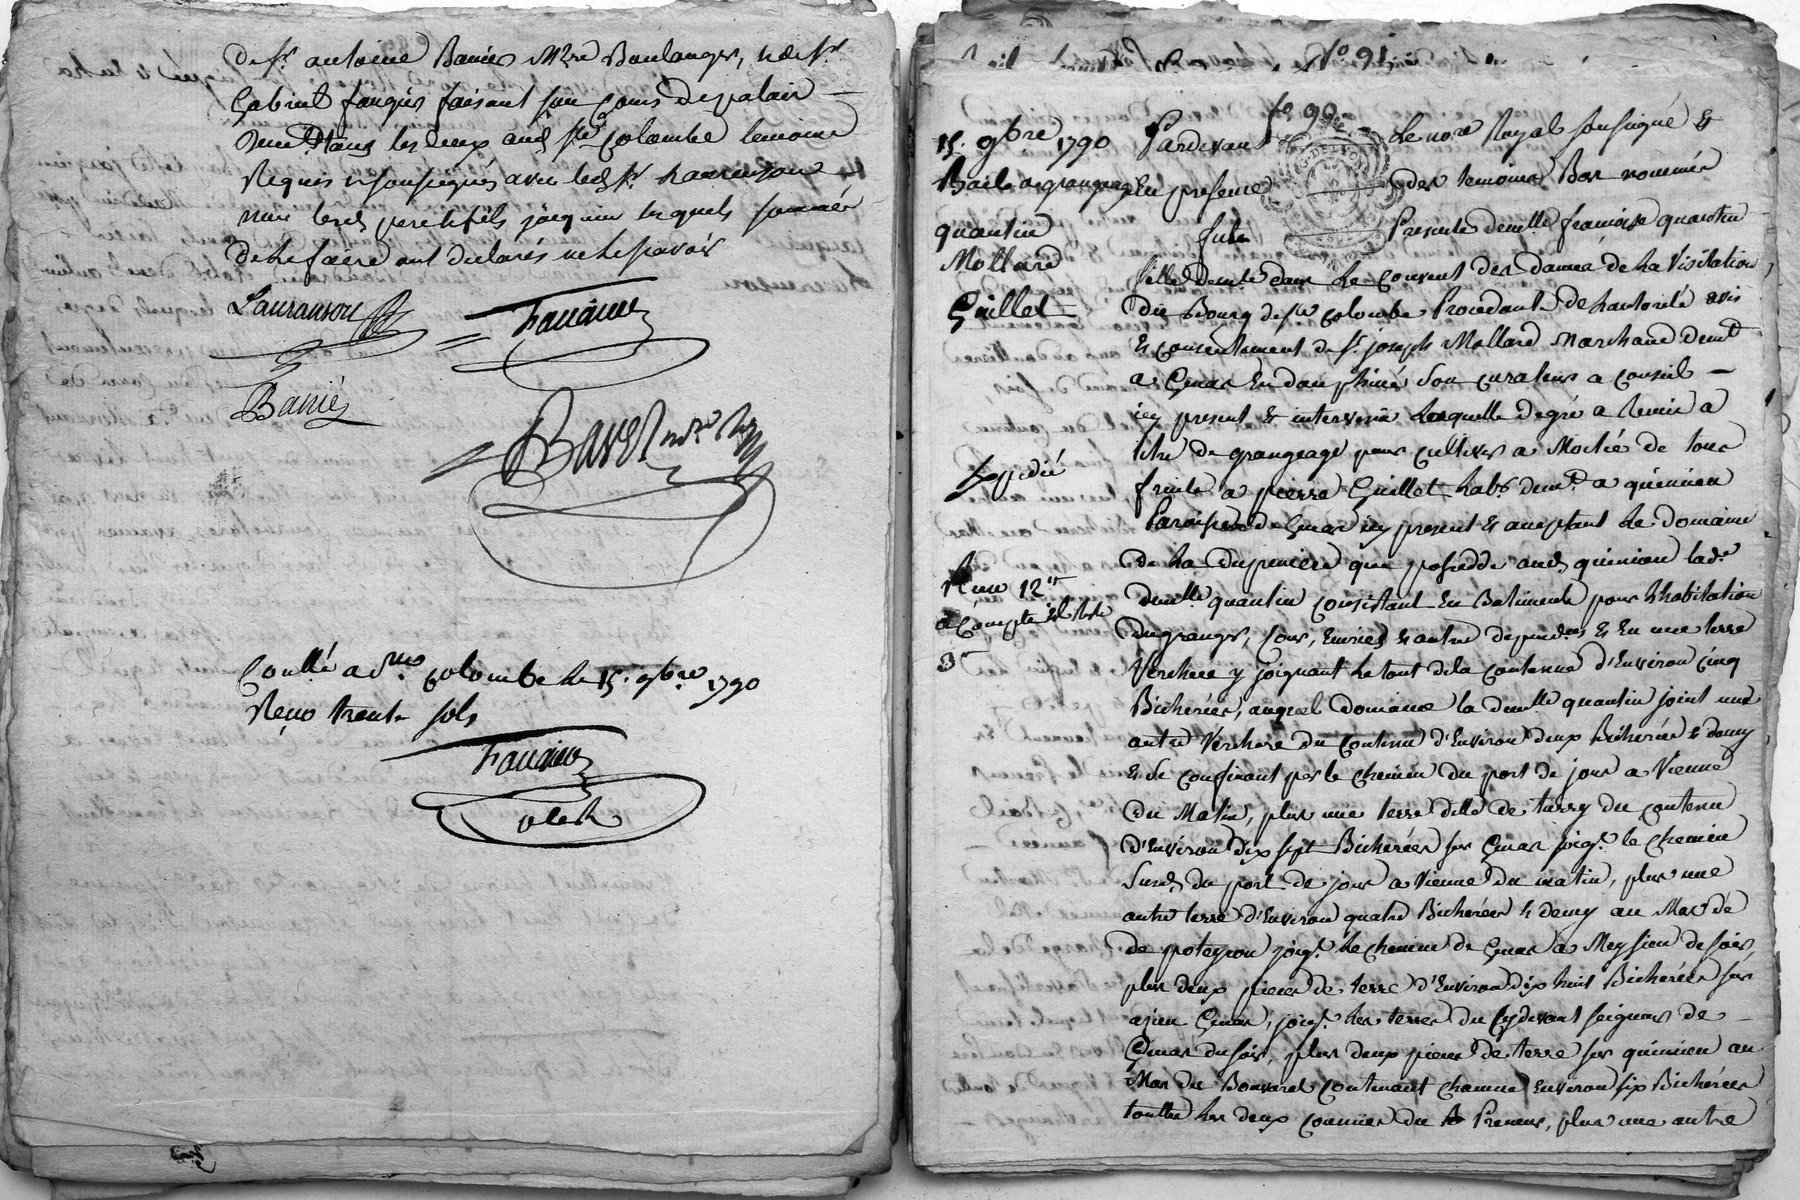 de sr. antoine Banié Mtre Boulanger, & de sr.
Gabriel fauquis faisant son cours de palais
demts. tous les deux aud. ste colombe temoins
Requis & soussignés avec led. sr. Lauranson
non lesd. pere & fils jacquin lesquels sommés
de le faire ont declarés ne le savoir
Lauranson
Banié
Bavet nore Ry
Conllé a ste colombe le 15. 9bre 1790
Reçu trente sols
fo 91
fo 90
15. 9bre 1790
Bail a grangeage
quantin
Mollard
Guillet
Expedié
Reçu 12
a compte
Pardevant Le nore Royal soussigné &
En presence des temoins Bas nommés
fut Presente demlle françoise quantin
fille demte dans le couvent des dames de la Visitation
du Bourg de ste colombe Procedante de l'autorité avis
& consentement de sr. joseph Mollard Marchand demt
a Genas En dauphiné Son curateur a conseil
icy present & intervenu Laquelle de gré a Remis a
titre de grangeage pour cultiver a Moitié de tous
fruits a pierre Guillet habt. demt. a quinieu
Paroisse de Genas icy present & acceptant Le domaine
de la que possedde aud. quinieu lad.
demlle quantin consistant En Batiments pour l'habitation
du granger, Cour, Ecuries & autres dependces & En une terre
Verchere y joignant le tout de la contenue d'Environ Cinq
Bicherées, auquel domaine la demlle quantin joint une
autre Verchere du contenu d'Environ deux bicherées & demy
& Se confinant par le chemin du port de jons a Vienne
du Matin, plus une terre ditte de turry du contenu
d'Environ dix sept Bicherées sur Genas joigt. le chemin
Susd. du port de jons a vienne du matin, plus une
autre terre d'Environ quatre Bicherées & demy au Mas de
de poteyron joigt. le chemin de Genas a Meyzieu de soir
plus deux pieces de terre d'Environ dix huit Bicherées sur
Genas, joigt. les terres du cydevant seigneur de
Genas du soir, plus deux pieces de terre sur quinieu au
Mas du Bonvaret contenant chacune Environ six Bicherées
toutes les deux du plus une autre